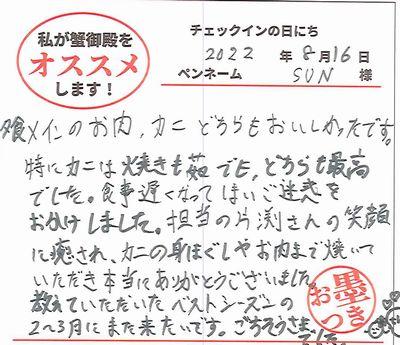 私が蟹御殿を
オススメ
します！
チェックインの日にち
2022年8月16日
ペンネーム SUN 様
メインのお肉、カニ どちらもおいしかったです。
特にカニは焼きも茹でも、どちらも最高
でした。食事遅くなってはいご迷惑を
おかけしました。担当の片渕さんの笑顔
に癒され、カニの身ほぐしやお肉まで焼いて
いただき本当にありがとうございました。
教えていただいたベストシーズンの
2〜3月にまた来たいです。ごちそうさま
お墨つき